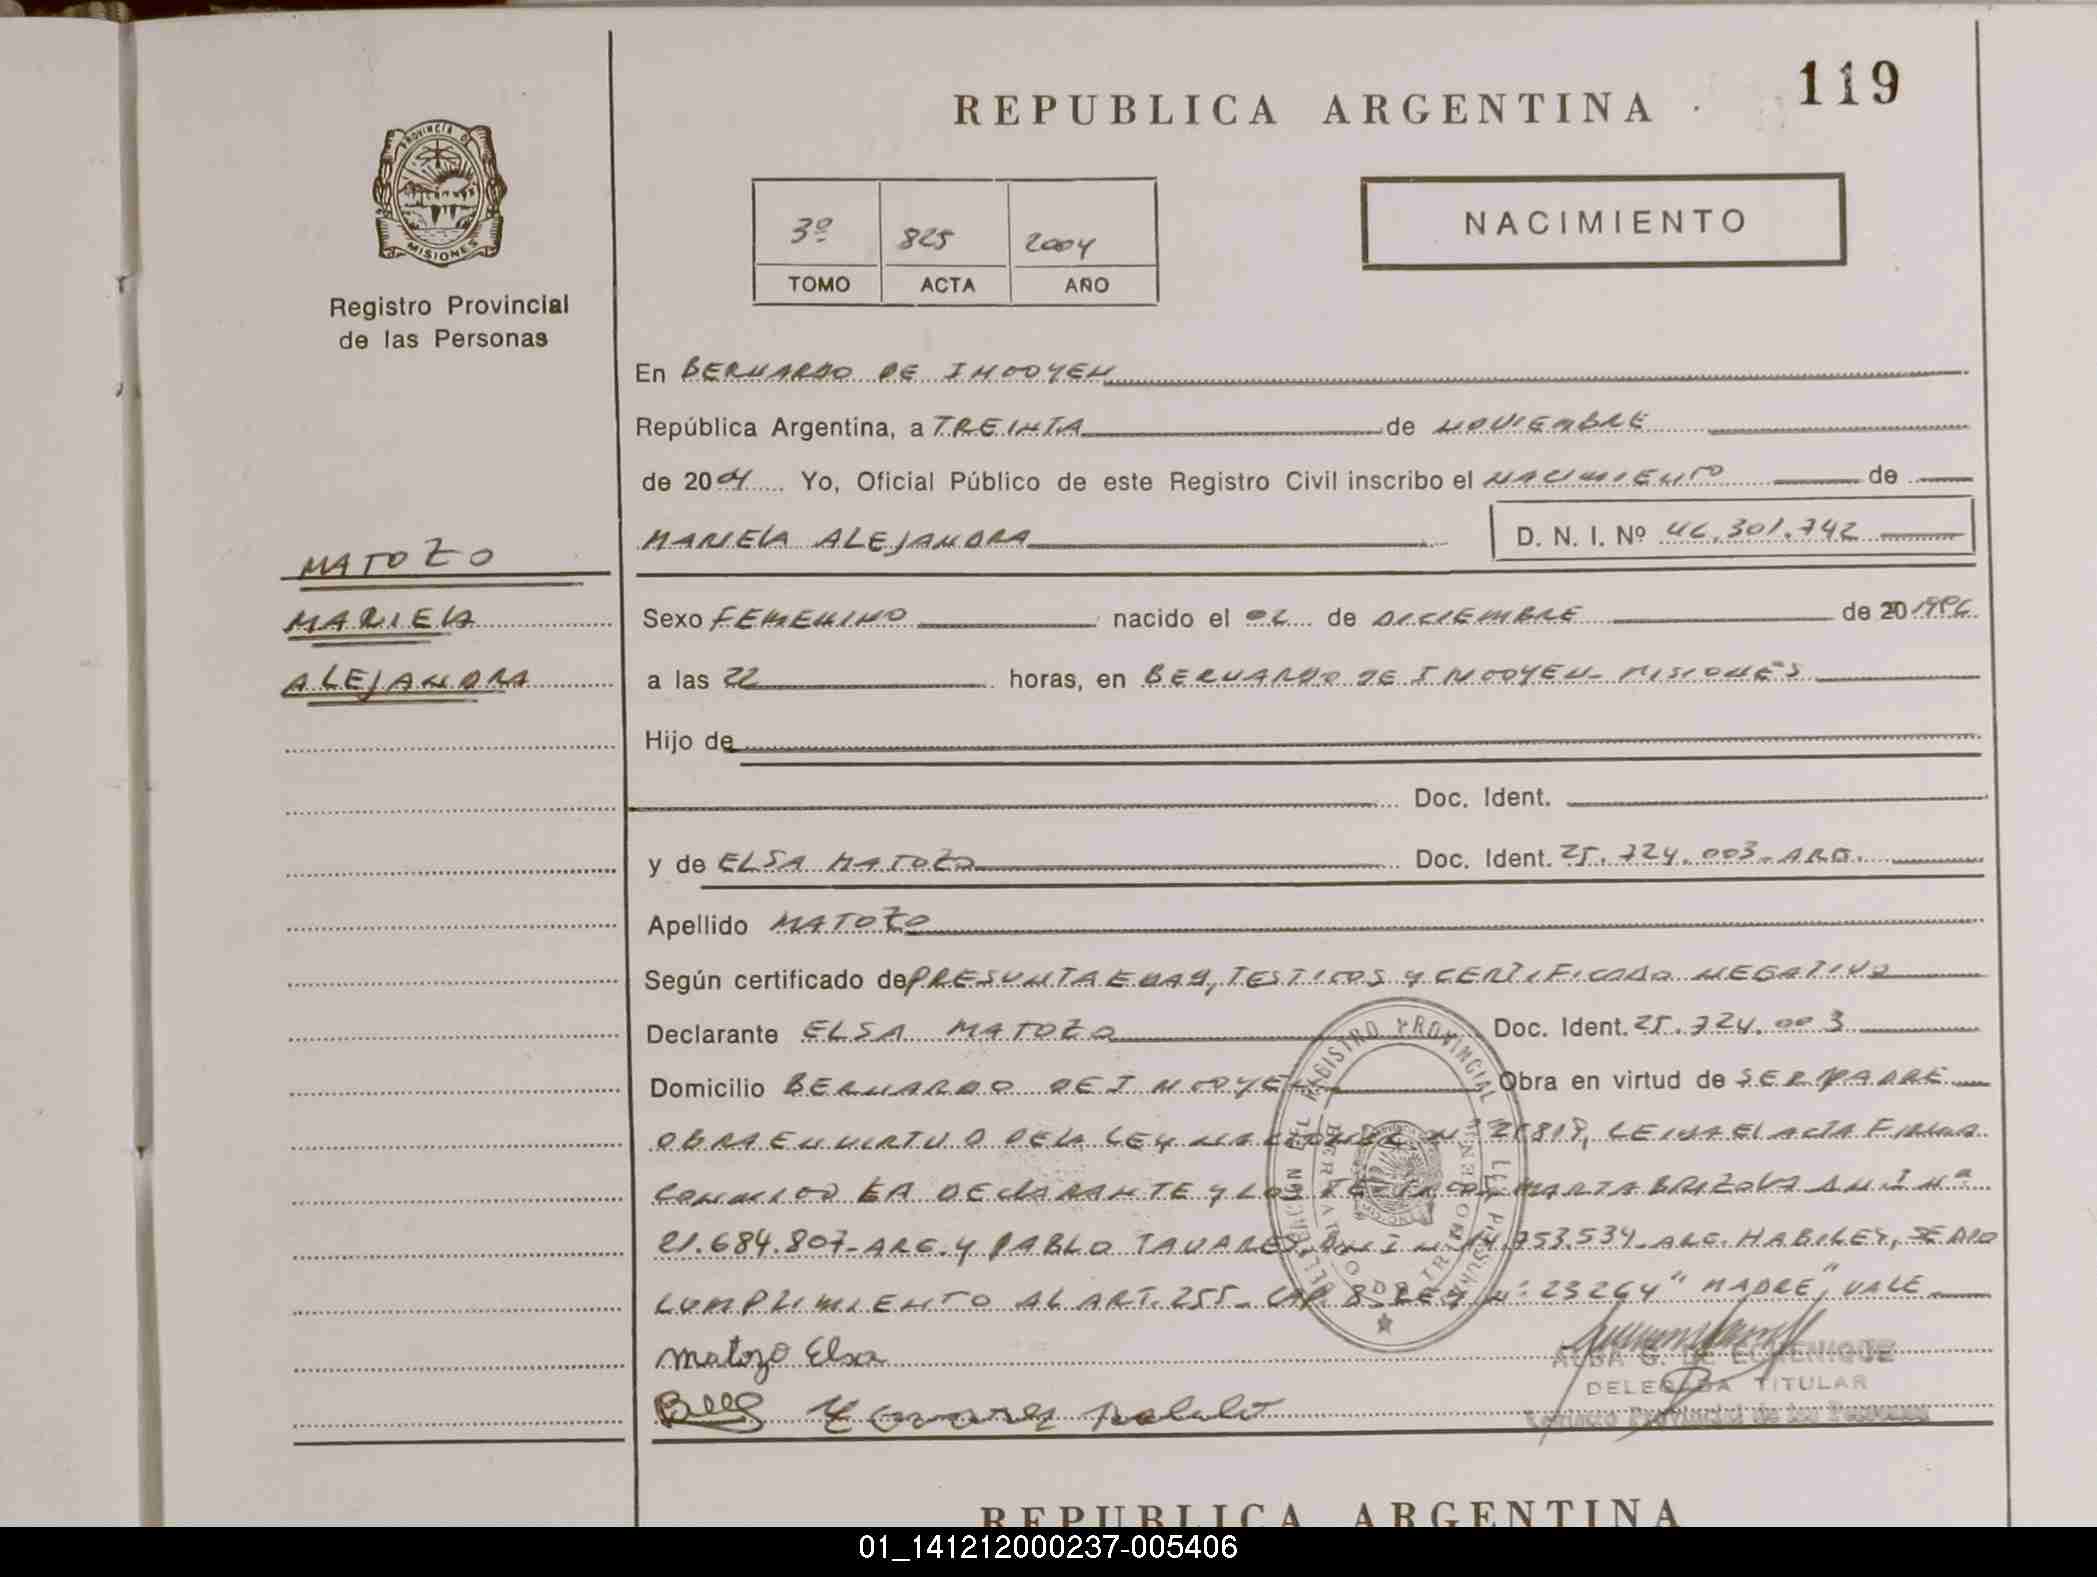 119
REPUBLICA ARGENTINA
PROVINCIA DE
MISIONES
Registro Provincial
de las Personas
3º 825 2004
TOMO ACTA AÑO
NACIMIENTO
En BERNARDO DE IRIGOYEN
República Argentina, a TREINTA de NOVIEMBRE
de 2004 Yo, Oficial Público de este Registro Civil inscribo el NACIMIENTO de
MARIELA ALEJANDRA D. N. I. Nº 46.301.742
MATOZO
MARIELA
ALEJANDRA
Sexo FEMENINO nacido el 02 de DICIEMBRE de 20 1996
a las 22 horas, en BERNARDO DE IRIGOYEN- MISIONES
Hijo de
Doc. Ident.
y de ELSA MATOZO Doc. Ident. 25.724.003- ARG.
Apellido MATOZO
Según certificado de PRESUNTA EDAD, TESTIGOS Y CERTIFICADO NEGATIVO
Declarante ELSA MATOZO Doc. Ident. 25.724.003
Domicilio BERNARDO DE IRIGOYEN Obra en virtud de SER MADRE
OBRA EN VIRTUD DE LA LEY NACIONAL Nº 21818, LEIDA EL ACTA FIRMA
CONMIGO LA DECLARANTE Y LOS TESTIGOS, MARTA BRIZOLA DNI Nº
21.684.807- ARG. Y PABLO TAVARES, DNI Nº 14.753.534- ARG. HABILES, SE DIO
CUMPLIMIENTO AL ART. 255- CAP. 8- LEY Nº 23264 "MADRE", VALE
Matozo Elsa
ALBA G. DE ECHENIQUE
DELEGADA TITULAR
Registro Provincial de las Personas
REPUBLICA ARGENTINA
01_141212000237-005406